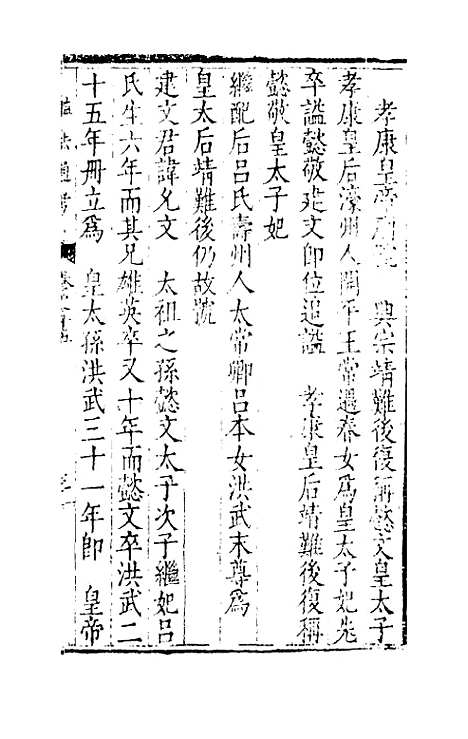 孝康皇帝廟號　興宗靖難後復稱懿文皇太子
孝康皇后濠州人開平王常遇春女爲皇太子妃先
卒謚懿敬建文即位追謚　孝康皇后靖難後復稱
懿敬皇太子妃
繼配后呂氏壽州人太常卿呂本女洪武末尊爲
皇太后靖難後仍故號
建文君諱允文　太祖之孫懿文太子次子繼妃呂
氏生六年而其兄雄英卒又十年而懿文卒洪武二
十五年冊立爲　皇太孫洪武三十一年即　皇帝